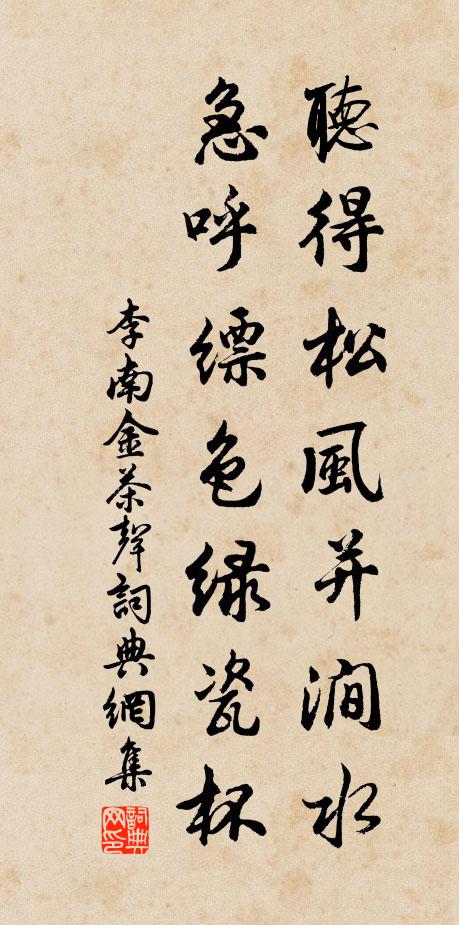 聽得松風并澗水
急呼縹色緑瓷杯
李南金茶聲詞典網集
詞典网印